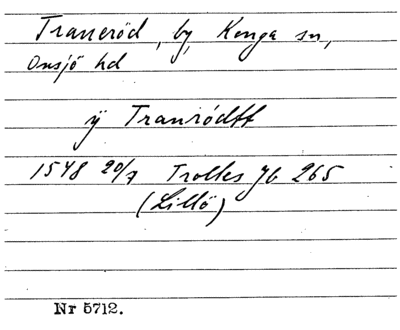 Traneröd, by, Konga sn,
Onsjö hd
ÿ Tranródtt
1548 20/7 Trolles Jb 265
(Lillö)
Nr 5712.